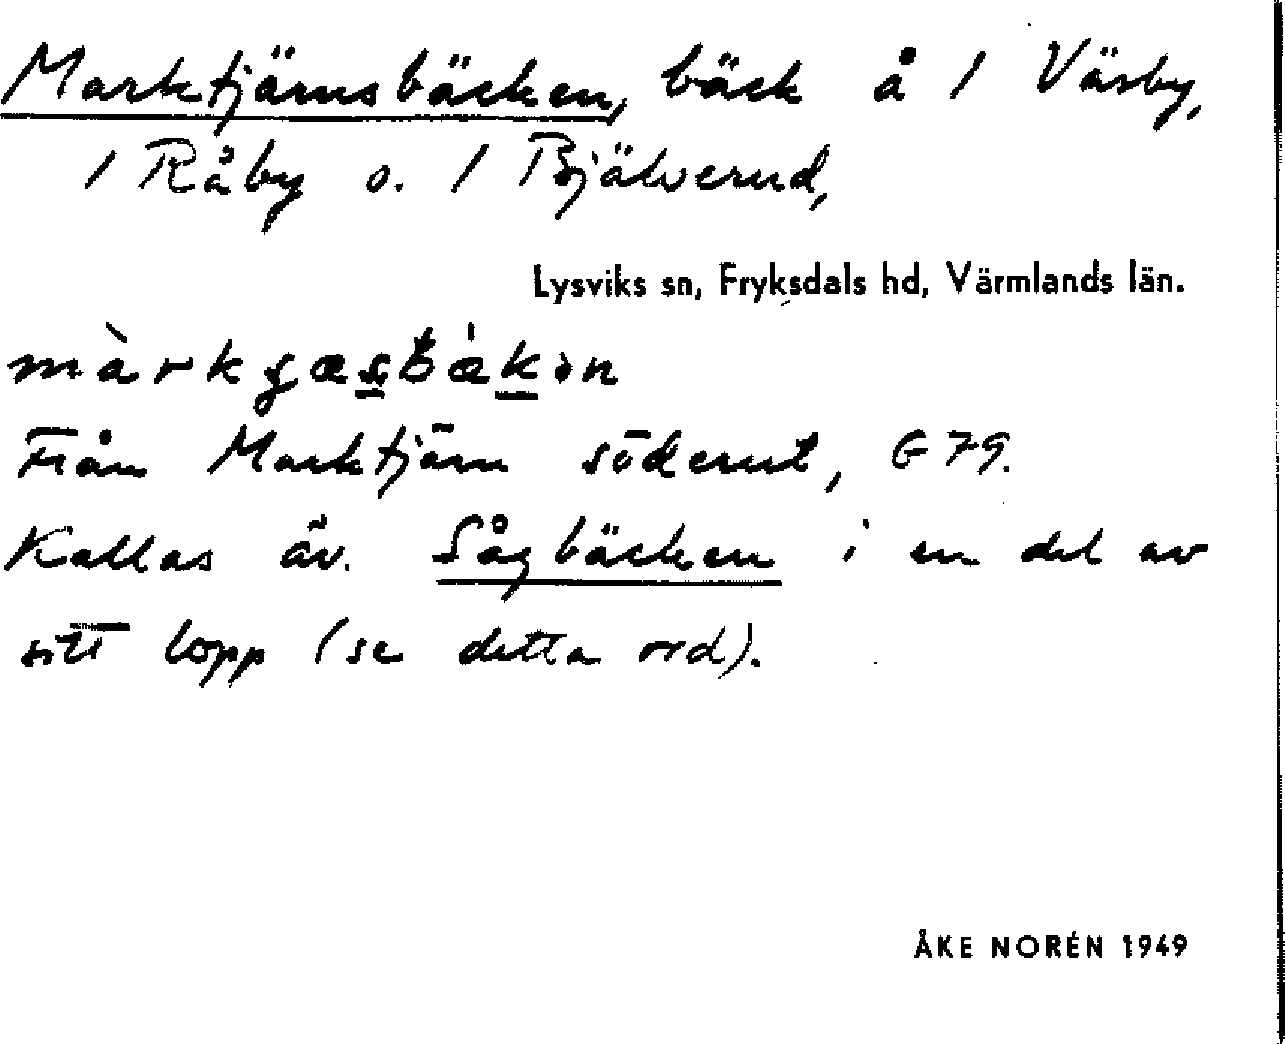 Marktjärnsbäcken, bäck å 1 Väsby,
1 Råby o. 1 Bjälverud,
Lysviks sn, Fryksdals hd, Värmlands län.
Från Marktjärn söderut, G 79.
Kallas äv. Sågbäcken i en del av
sitt lopp (se detta ord).
ÅKE NORÉN 1949